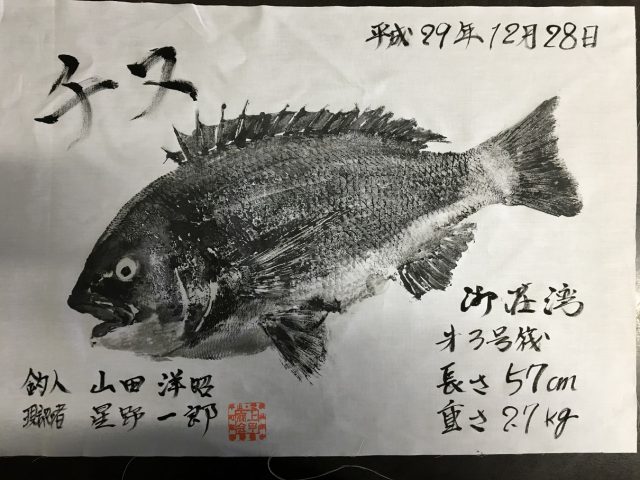 チヌ
平成29年12月28日
御荘湾
才3号筏
長さ57cm
重さ2.7kg
釣人 山田 洋昭
現認者 星野 一郎